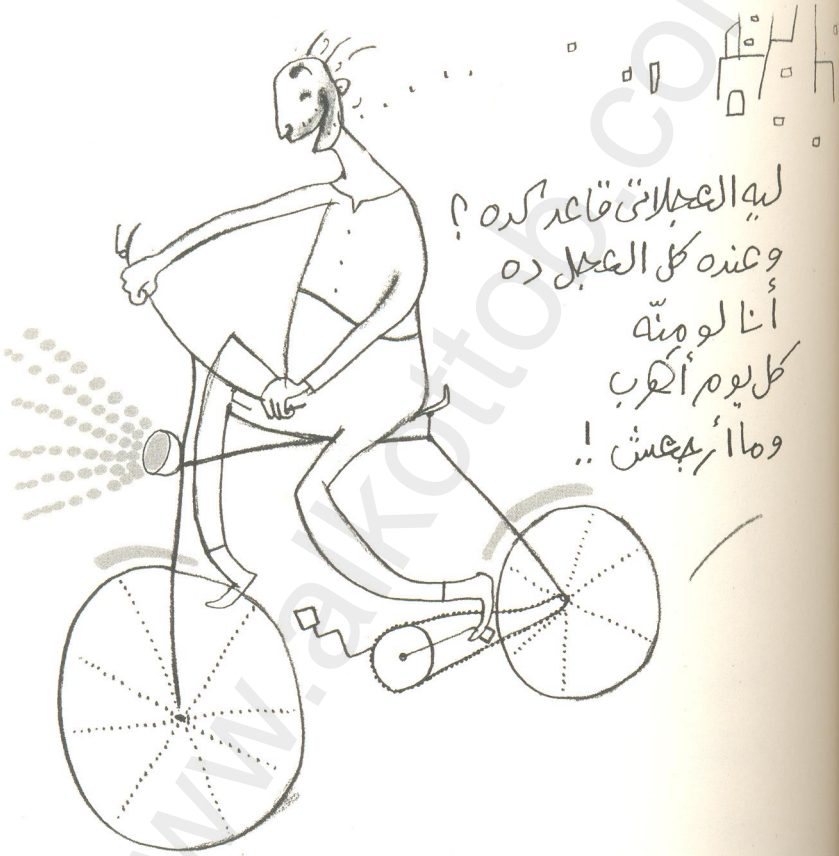 ليه العجلاتى قاعد كده ؟
وعنده كل العجل ده
أنا لو منّه
كل يوم أهرب
وما أرجعش !!
www.alkottob.com